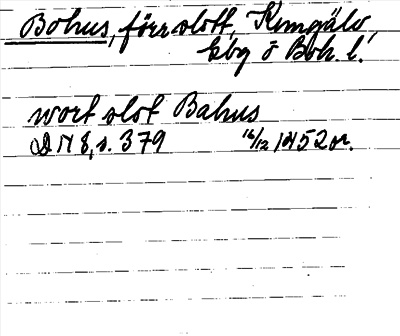 Bohus, förr slott, Kungälv,
kbg o Boh. l.
wort slot Bahus
DN 8, s. 379 16/12 1452 or.